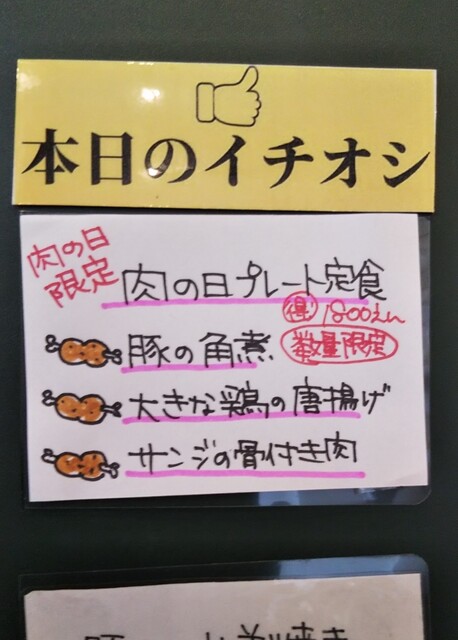 本日のイチオシ
肉の日
限定
肉の日プレート定食
得 1800えん
数量限定
豚の角煮
大きな鶏の唐揚げ
サンジの骨付き肉